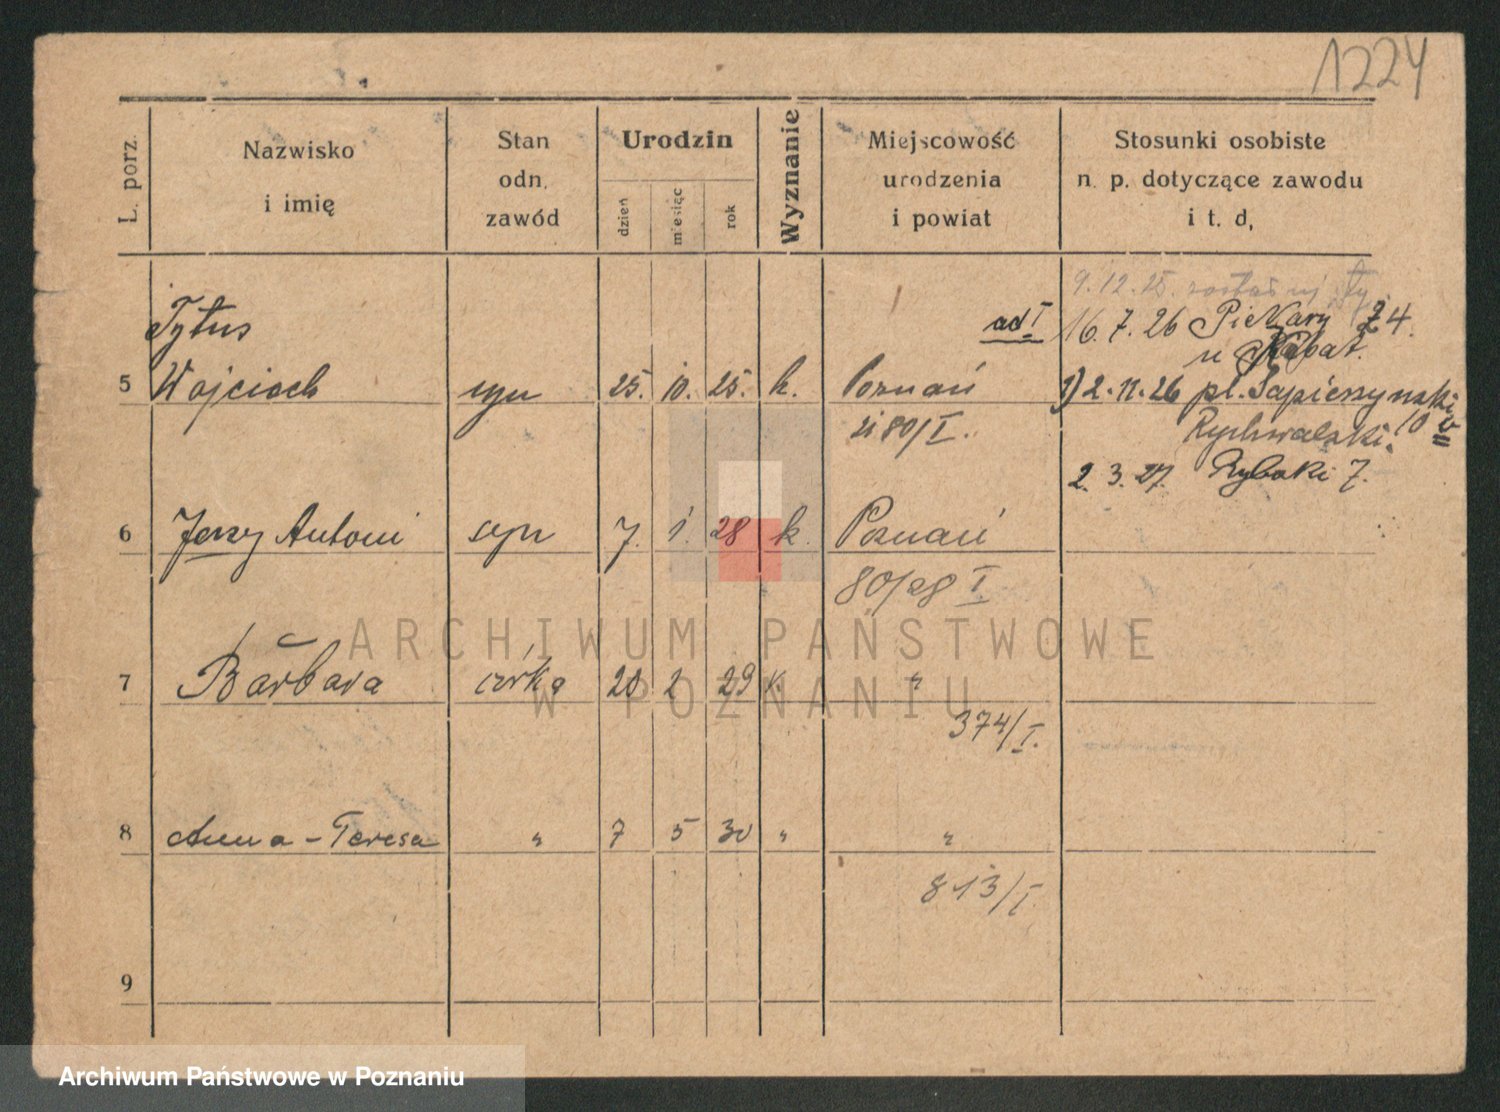 1224
L. porz.
Nazwisko
i imię
Stan
odn.
zawód
Urodzin
dzień
miesiąc
rok
Wyznanie
Miejscowość
urodzenia
i powiat
Stosunki osobiste
n. p. dotyczące zawodu
i t. d,
9.12.25.
Tytus
ad I 16.7.26 Piekary 24.
u Kabat.
5 Wojciech syn 25. 10. 25. k. Poznań 1) 2.11.26 pl. Sapieżynski
80/I. Rychwalski. 10
2.3.27. Rybaki 7.
6 Jerzy Antoni syn 7. 1. 28 k. Poznań
80/28 I.
ARCHIWUM PAŃSTWOWE
W POZNANIU
7 Barbara córka 20 2 29 k. "
374/I.
8 Anna-Teresa " 7 5 30 " "
813/I.
9
Archiwum Państwowe w Poznaniu